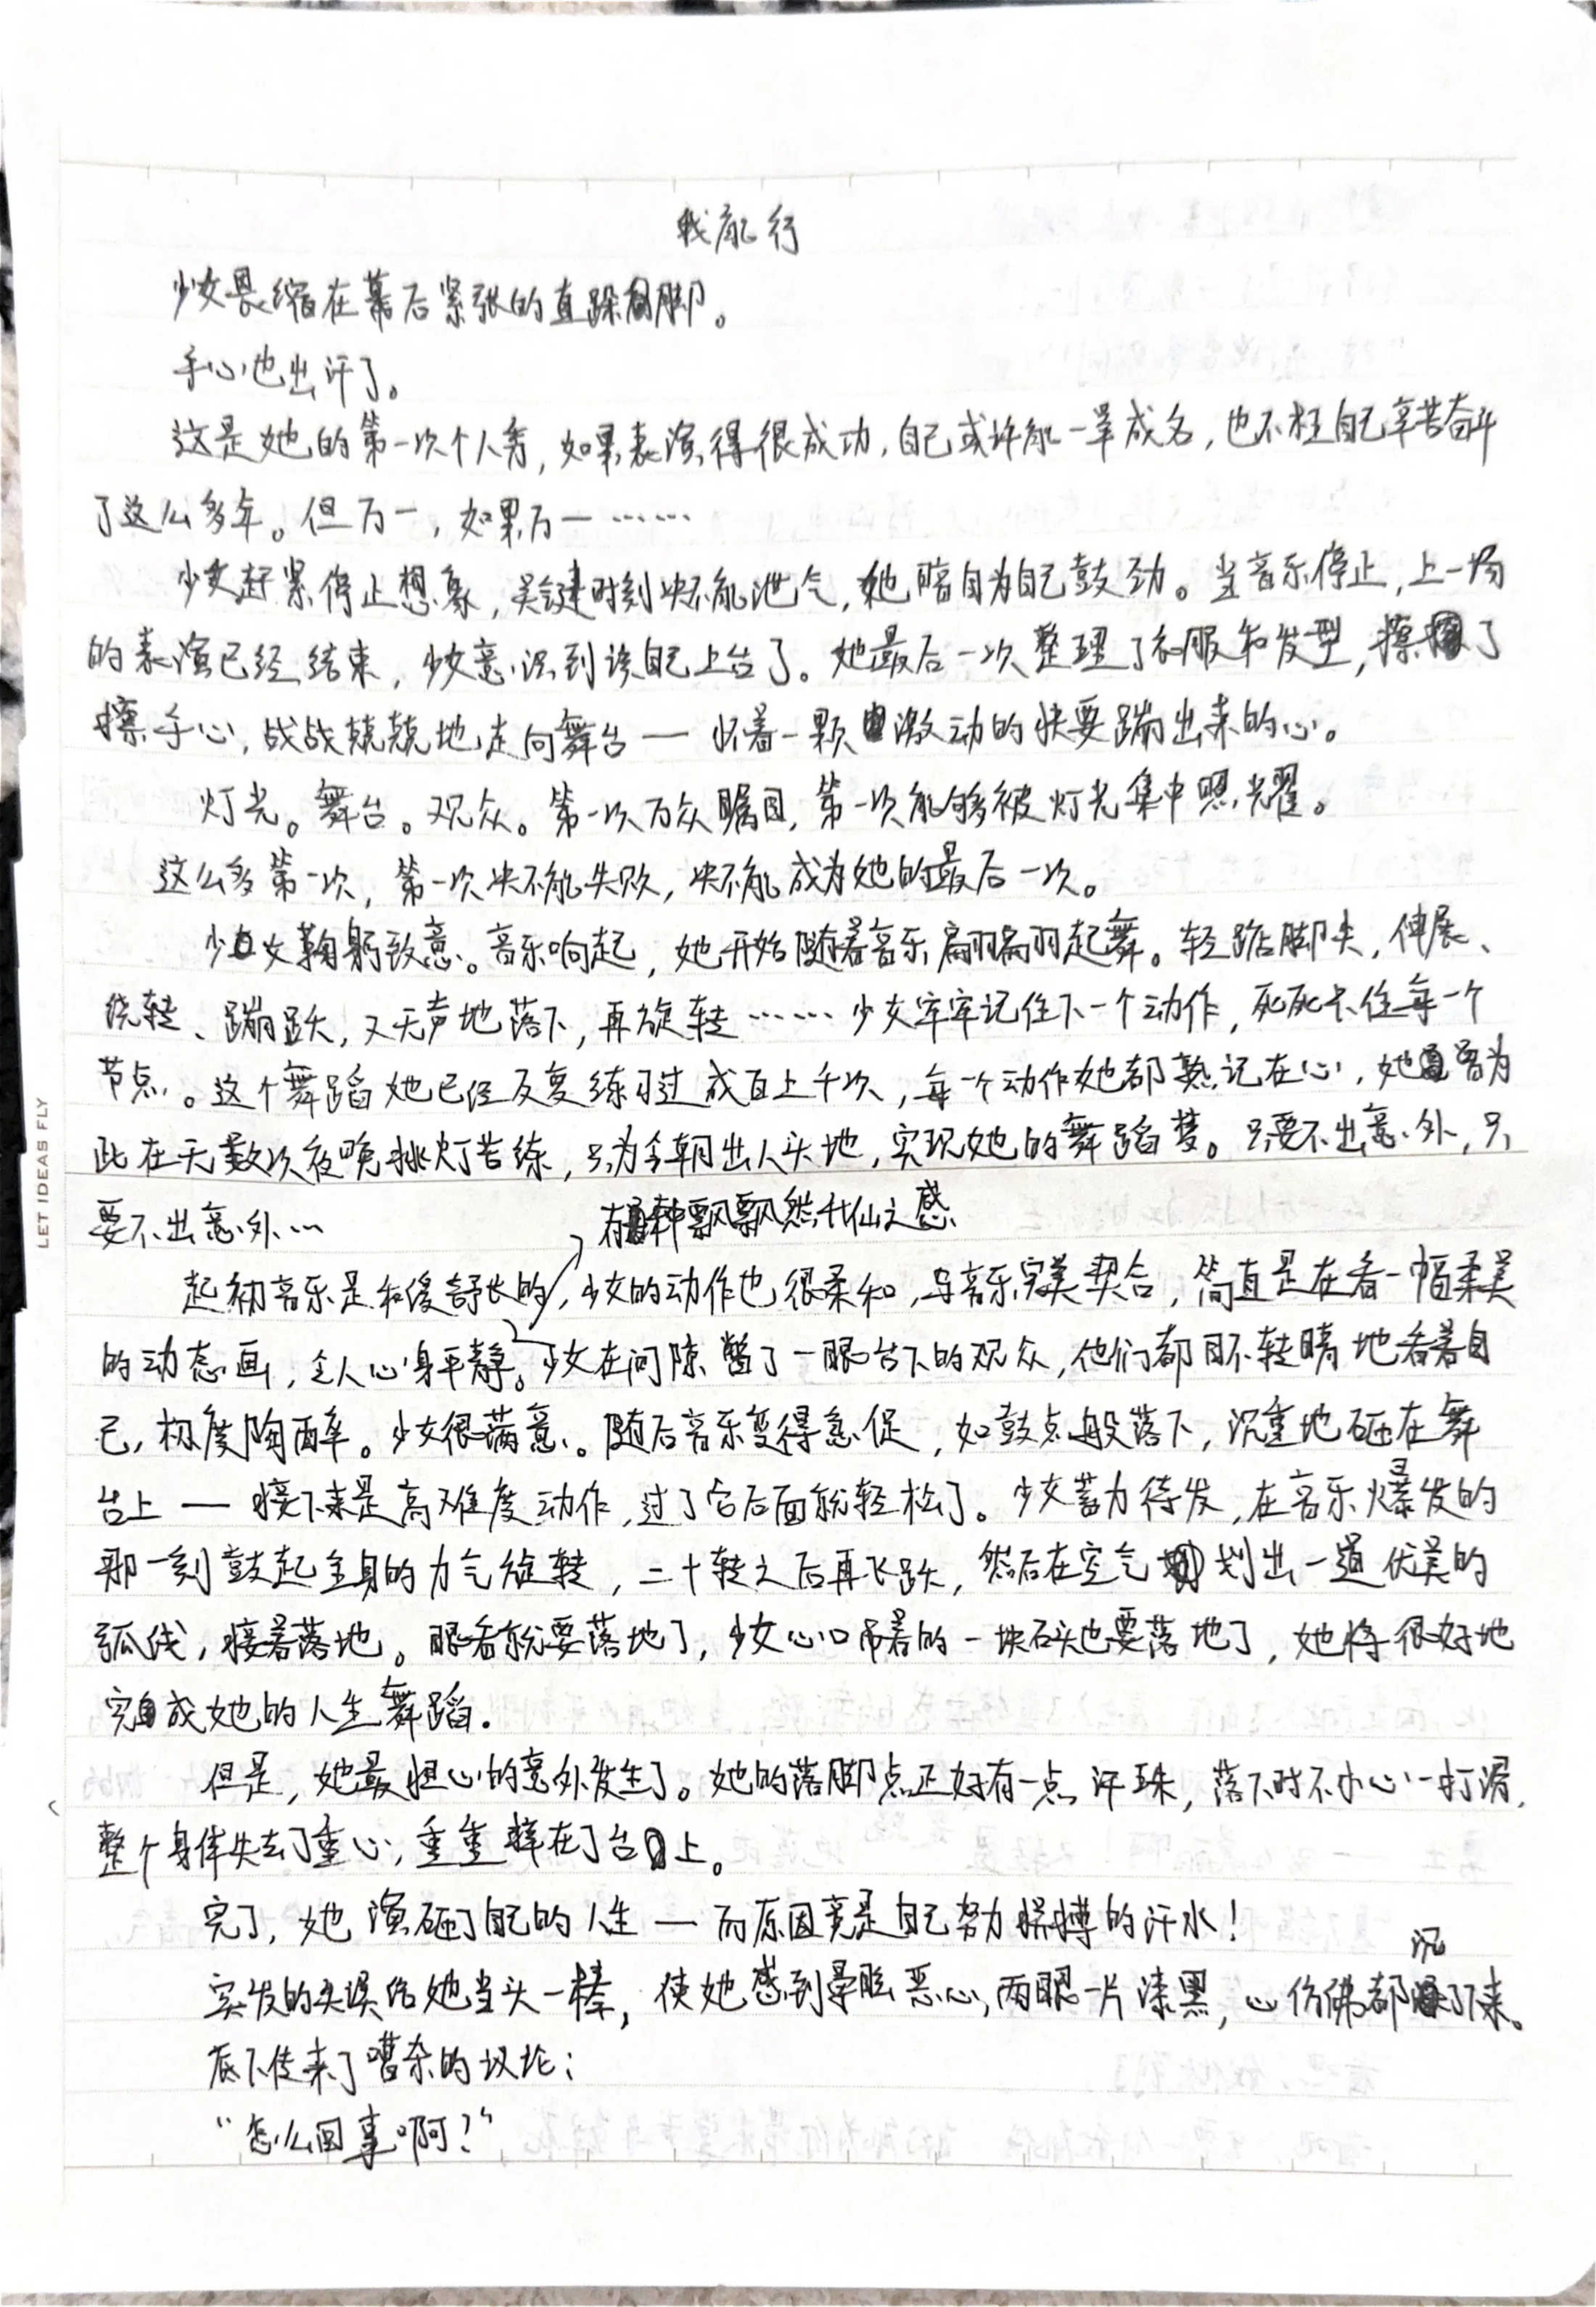 我能行
少女畏缩在幕后紧张的直跺脚。
手心也出汗了。
这是她的第一次个人秀，如果表演得很成功，自己或许能一举成名，也不枉自己辛苦奋斗
了这么多年。但万一，如果万一……
少女赶紧停止想象，关键时刻决不能泄气，她暗自为自己鼓劲。当音乐停止，上一场
的表演已经结束，少女意识到该自己上台了。她最后一次整理了衣服和发型，擦了
擦手心，战战兢兢地走向舞台——怀着一颗激动的快要蹦出来的心。
灯光。舞台。观众。第一次万众瞩目，第一次能够被灯光集中照耀。
这么多第一次，第一次决不能失败，决不能成为她的最后一次。
少女鞠躬致意。音乐响起，她开始随着音乐翩翩起舞。轻踮脚尖，伸展、
绕转、蹦跃，又无声地落下，再旋转……少女牢牢记住下一个动作，死死卡住每一个
节点。这个舞蹈她已经反复练习过成百上千次，每一个动作她都熟记在心，她曾为
此在无数次夜晚挑灯苦练，只为今朝出人头地，实现她的舞蹈梦。只要不出意外，只
要不出意外…
有种飘飘然升仙之感
起初音乐是和缓舒长的，少女的动作也很柔和，与音乐完美契合，简直是在看一幅柔美
的动态画，令人心身平静。少女在间隙瞥了一眼台下的观众，他们都目不转睛地看着自
己，极度陶醉。少女很满意。随后音乐变得急促，如鼓点般落下，沉重地砸在舞
台上——接下来是高难度动作，过了它后面就轻松了。少女蓄力待发，在音乐爆发的
那一刻鼓起全身的力气旋转，二十转之后再飞跃，然后在空气划出一道优美的
弧线，接着落地。眼看就要落地了，少女心口吊着的一块石头也要落地了，她将很好地
完成她的人生舞蹈.
但是，她最担心的意外发生了。她的落脚点正好有一点汗珠，落下时不小心一打滑，
整个身体失去了重心，重重摔在了台上。
完了，她演砸了自己的人生——而原因竟是自己努力拼搏的汗水！
突发的失误给她当头一棒，使她感到晕眩恶心，两眼一片漆黑，心仿佛都沉了下来。
底下传来了嘈杂的议论：
“怎么回事啊？”
LET IDEAS FLY